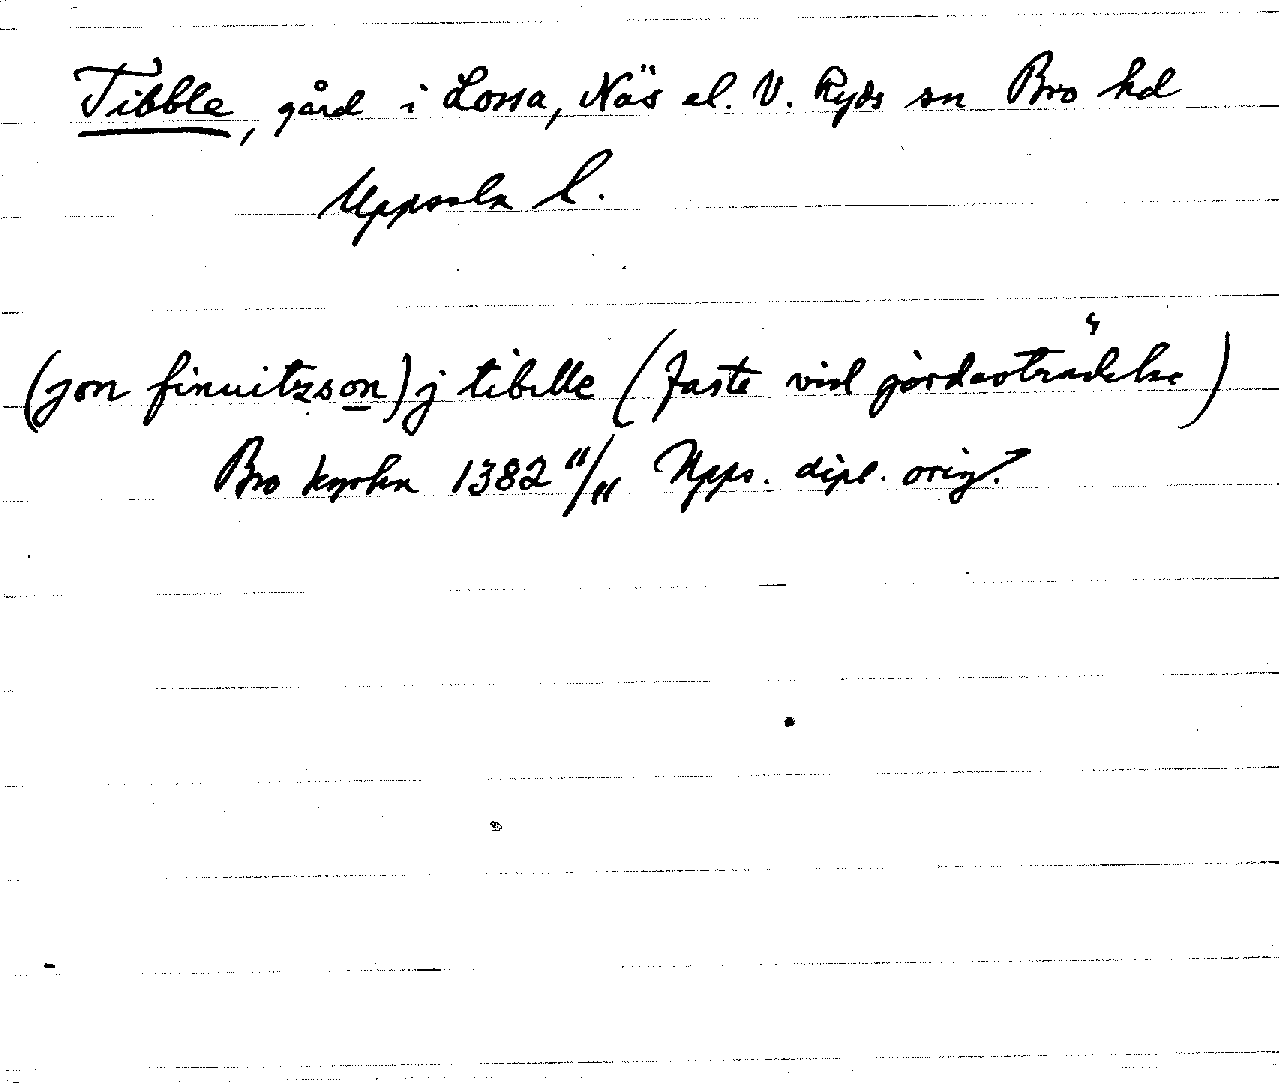 Tibble, gård i Lossa, Näs el. V. Ryds sn Bro hd
Uppsala l.
(jon finuitzson) j tibille (faste vid jordaoträdelse)
Bro kyrka 1382 11/11 Upps. dipl. orig.